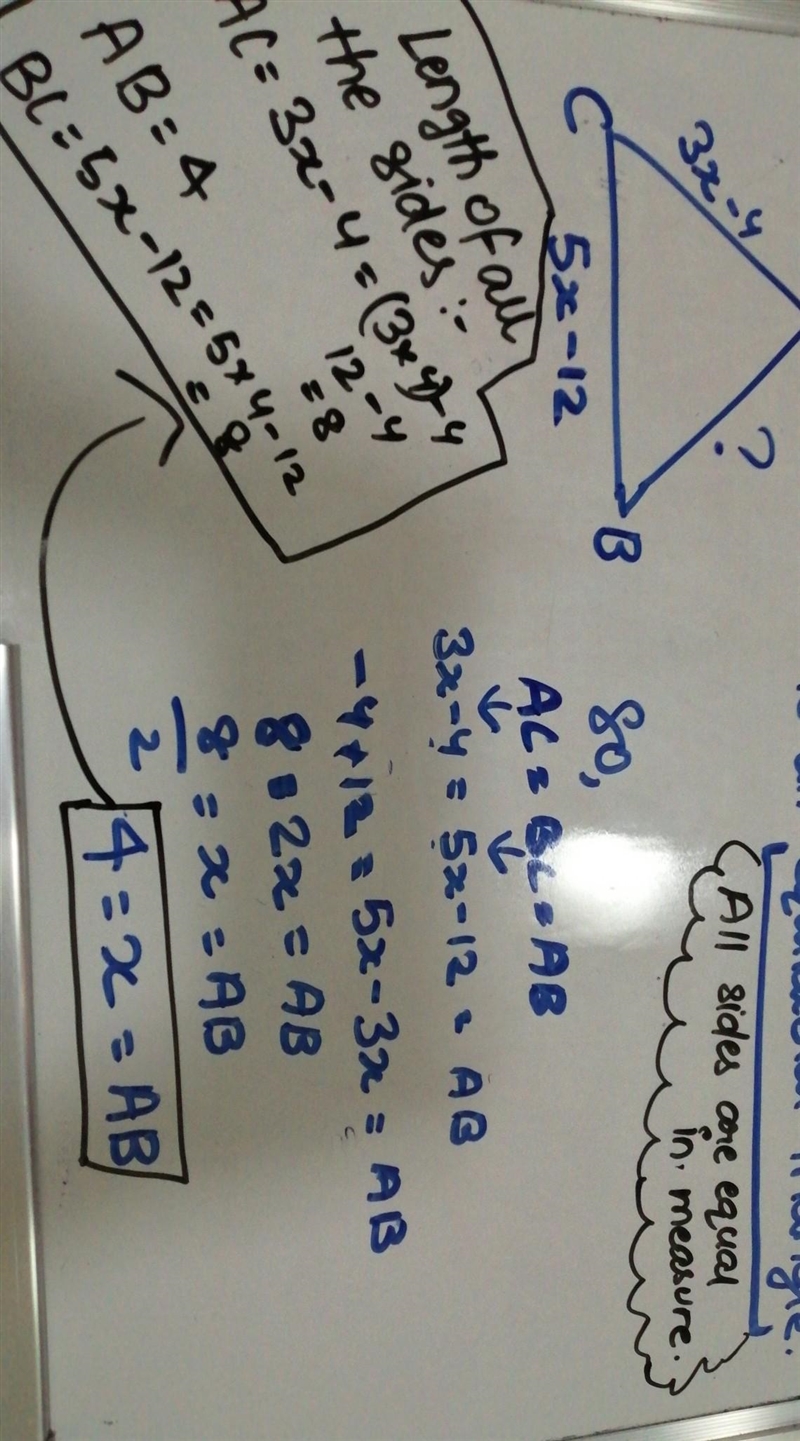 All sides are equal
in measure.
3x-4
?
C
5x-12
B
80,
AC = BC = AB
3x-4 = 5x-12 = AB
-4+12 = 5x-3x = AB
8 = 2x = AB
8/2 = x = AB
4 = x = AB
Length of all
the sides :-
AC = 3x-4 = (3x4)-4
12-4
= 8
AB = 4
BC = 5x-12 = 5x4-12
= 8